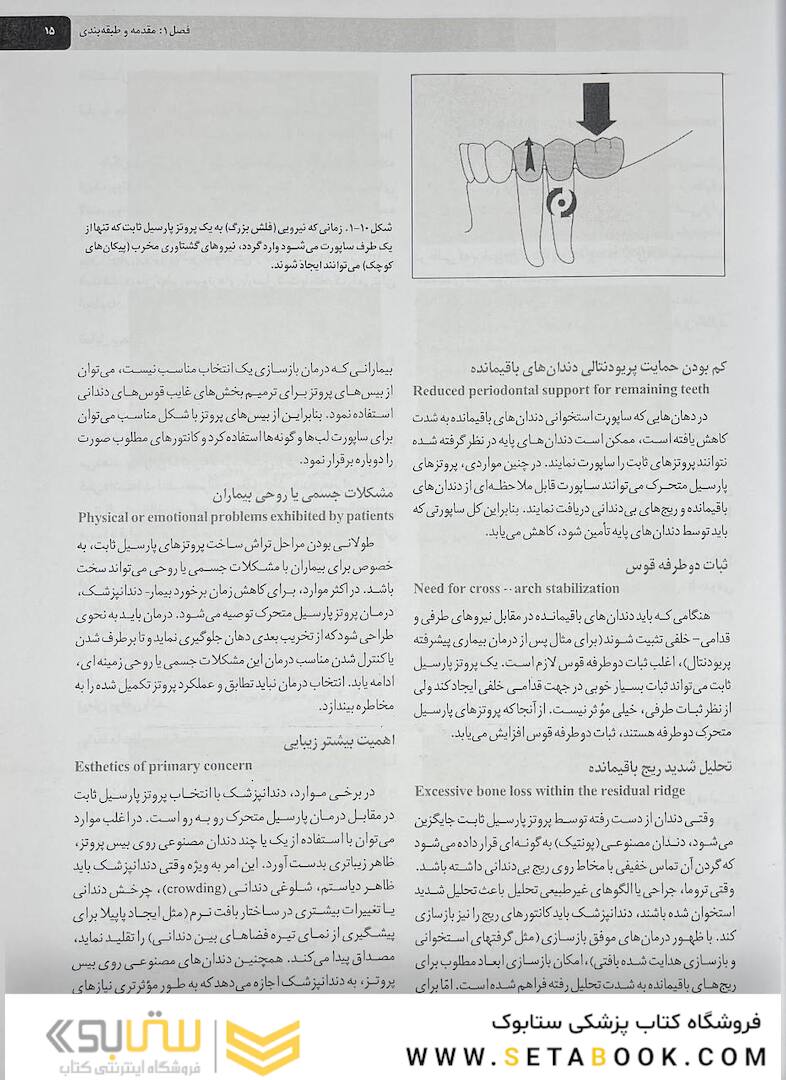 فصل ۱: مقدمه و طبقه‌بندی
۱۵
شکل ۱۰-۱. زمانی که نیرویی (فلش بزرگ) به یک پروتز پارسیل ثابت که تنها از
یک طرف ساپورت می‌شود وارد گردد، نیروهای گشتاوری مخرب (پیکان‌های
کوچک) می‌توانند ایجاد شوند.
کم بودن حمایت پریودنتالی دندان‌های باقیمانده
Reduced periodontal support for remaining teeth
در دهان‌هایی که ساپورت استخوانی دندان های باقیمانده به شدت
کاهش یافته است، ممکن است دندان های پایه در نظر گرفته شده
نتوانند پروتزهای ثابت را ساپورت نمایند. در چنین مواردی، پروتزهای
پارسیل متحرک می‌توانند ساپورت قابل ملاحظه‌ای از دندان‌های
باقیمانده و ریج‌های بی‌دندانی دریافت نمایند. بنابراین کل ساپورتی که
باید توسط دندان‌های پایه تأمین شود، کاهش می‌یابد.
ثبات دوطرفه قوس
Need for cross -- arch stabilization
هنگامی که باید دندان‌های باقیمانده در مقابل نیروهای طرفی و
قدامی- خلفی تثبیت شوند (برای مثال پس از درمان بیماری پیشرفته
پریودنتال)، اغلب ثبات دوطرفه قوس لازم است. یک پروتز پارسیل
ثابت می‌تواند ثبات بسیار خوبی در جهت قدامی خلفی ایجاد کند ولی
از نظر ثبات طرفی، خیلی مؤثر نیست. از آنجا که پروتزهای پارسیل
متحرک دوطرفه هستند، ثبات دوطرفه قوس افزایش می‌یابد.
تحلیل شدید ریج باقیمانده
Excessive bone loss within the residual ridge
وقتی دندان از دست رفته توسط پروتز پارسیل ثابت جایگزین
می‌شود، دندان مصنوعی (پونتیک) به‌گونه‌ای قرار داده می‌شود
که گردن آن تماس خفیفی با مخاط روی ریج بی‌دندانی داشته باشد.
وقتی تروما، جراحی یا الگوهای غیرطبیعی تحلیل باعث تحلیل شدید
استخوان شده باشند، دندانپزشک باید کانتورهای ریج را نیز بازسازی
کند. با ظهور درمان‌های موفق بازسازی (مثل گرفتهای استخوانی
و بازسازی هدایت شده بافتی)، امکان بازسازی ابعاد مطلوب برای
ریج‌های باقیمانده به شدت تحلیل رفته فراهم شده است. امّا برای
بیمارانی که درمان بازسازی یک انتخاب مناسب نیست، می‌توان
از بیس‌های پروتز برای ترمیم بخش‌های غایب قوس‌های دندانی
استفاده نمود. بنابراین از بیس‌های پروتز با شکل مناسب می‌توان
برای ساپورت لب‌ها و گونه‌ها استفاده کرد و کانتورهای مطلوب صورت
را دوباره برقرار نمود.
مشکلات جسمی یا روحی بیماران
Physical or emotional problems exhibited by patients
طولانی بودن مراحل تراش ساخت پروتزهای پارسیل ثابت، به
خصوص برای بیماران با مشکلات جسمی یا روحی می‌تواند سخت
باشد. در اکثر موارد، برای کاهش زمان برخورد بیمار- دندانپزشک،
درمان پروتز پارسیل متحرک توصیه می‌شود. درمان باید به نحوی
طراحی شود که از تخریب بعدی دهان جلوگیری نماید و تا برطرف شدن
یا کنترل شدن مناسب درمان این مشکلات جسمی یا روحی زمینه ای،
ادامه یابد. انتخاب درمان نباید تطابق و عملکرد پروتز تکمیل شده را به
مخاطره بیندازد.
اهمیت بیشتر زیبایی
Esthetics of primary concern
در برخی موارد، دندانپزشک با انتخاب پروتز پارسیل ثابت
در مقابل درمان پارسیل متحرک رو به رو است. در اغلب موارد
می‌توان با استفاده از یک یا چند دندان مصنوعی روی بیس پروتز،
ظاهر زیباتری بدست آورد. این امر به ویژه وقتی دندانپزشک باید
ظاهر دیاستم، شلوغی دندانی (crowding)، چرخش دندانی
یا تغییرات بیشتری در ساختار بافت نرم (مثل ایجاد پاپیلا برای
پیشگیری از نمای تیره فضاهای بین دندانی) را تقلید نماید،
مصداق پیدا می‌کند. همچنین دندان‌های مصنوعی روی بیس
پروتز، به دندانپزشک اجازه می‌دهد که به طور مؤثرتری نیازهای
فروشگاه کتاب پزشکی ستابوک
WWW.SETABOOK.COM
ستابوک
فروشگاه اینترنتی کتاب